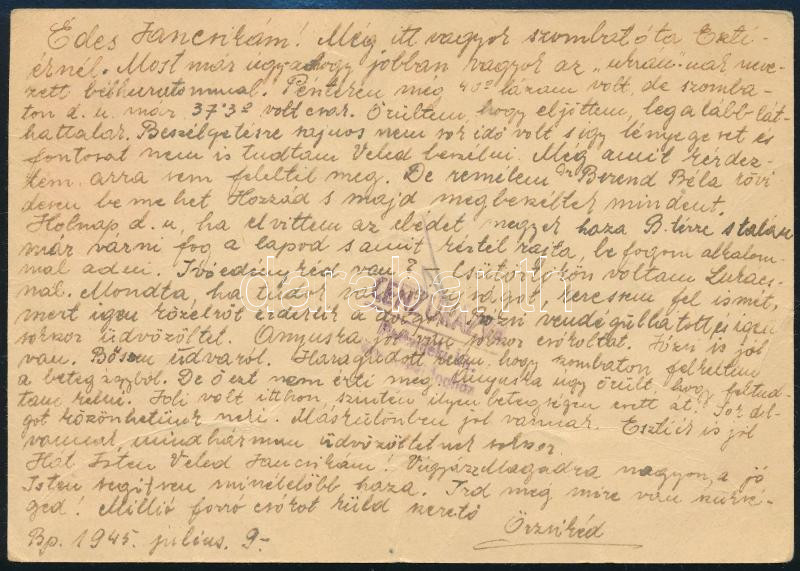 Édes Jancsikám! Még itt vagyok szombat óta Eszti-
éknél. Most már úgyahogy jobban vagyok az „urrau"-nak neve-
zett bélhurutommal. Pénteken még 40° lázam volt, de szomba-
ton d. u. már 37'3° volt csak. Örültem, hogy eljöttem, legalább lát-
hattalak. Beszélgetésre sajnos nem sok idő volt s így lényegeset és
fontosat nem is tudtam Veled beszélni. Még amit kérdez-
tem arra sem feleltél meg. De remélem Dr Berend Béla rövi-
desen bemehet Hozzád s majd megbeszéltek mindent.
Holnap d. u, ha elvittem az ebédet megyek haza B. térre s talán
már várni fog a lapod s amit kértél rajta, be fogom alkalom-
mal adni. Ivóedénykéd van? Csütörtökön voltam Lukács-
nál. Mondta, ha tudok valami újságot, keressem fel ismét,
mert igen közelről érdekli a dolog. Rozsi vendégül látott és igen
sokszor üdvözöltet. Anyuska jól van sokszor csókoltat. Józsi is jól
van. Bősen udvarol. Haragudott rám, hogy szombaton felkeltem
a betegágyból. De ő ezt nem érti meg. Anyuska úgy örült, hogy feltud-
tam kelni. Joli volt itthon, szintén ilyen betegségen esett át.
got köszönhetünk neki. Máskülönben jól vannak. Esztiék is jól
vannak mindhárman üdvözöltetnek sokszor.
Hát Isten Veled Jancsikám. Vigyázz Magadra nagyon, a jó
Isten segítsen mineélőbb haza. Írd meg mire van szüksé-
ged! Millió forró csókot küld szerető
Őrzsikéd
Bp. 1945. július. 9-
darabanth